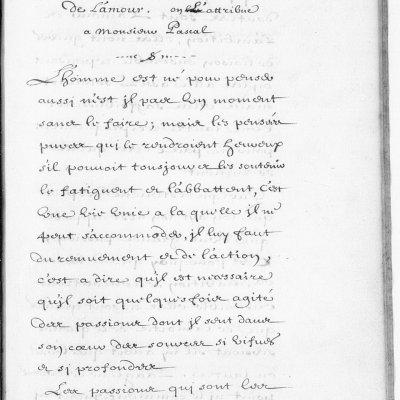 de L'amour. on l'attribue
a Monsieur Pascal
L'homme est né pour penser
aussi n'est jl pas un moment
sans le faire; mais les pensées
pures qui le rendroient heureux
s'il pouvoit tousjours les soutenir
le fatiguent et l'abbattent, C'est
une vie unie a la quelle jl ne
peut s'accommoder, jl luy faut
du remuement et de l'action,
c'est a dire qu'jl est necessaire
qu'jl soit quelquesfois agité
des passions dont jl sent dans
son cœur des sources si vifues
et si profondes
Les passions qui sont les